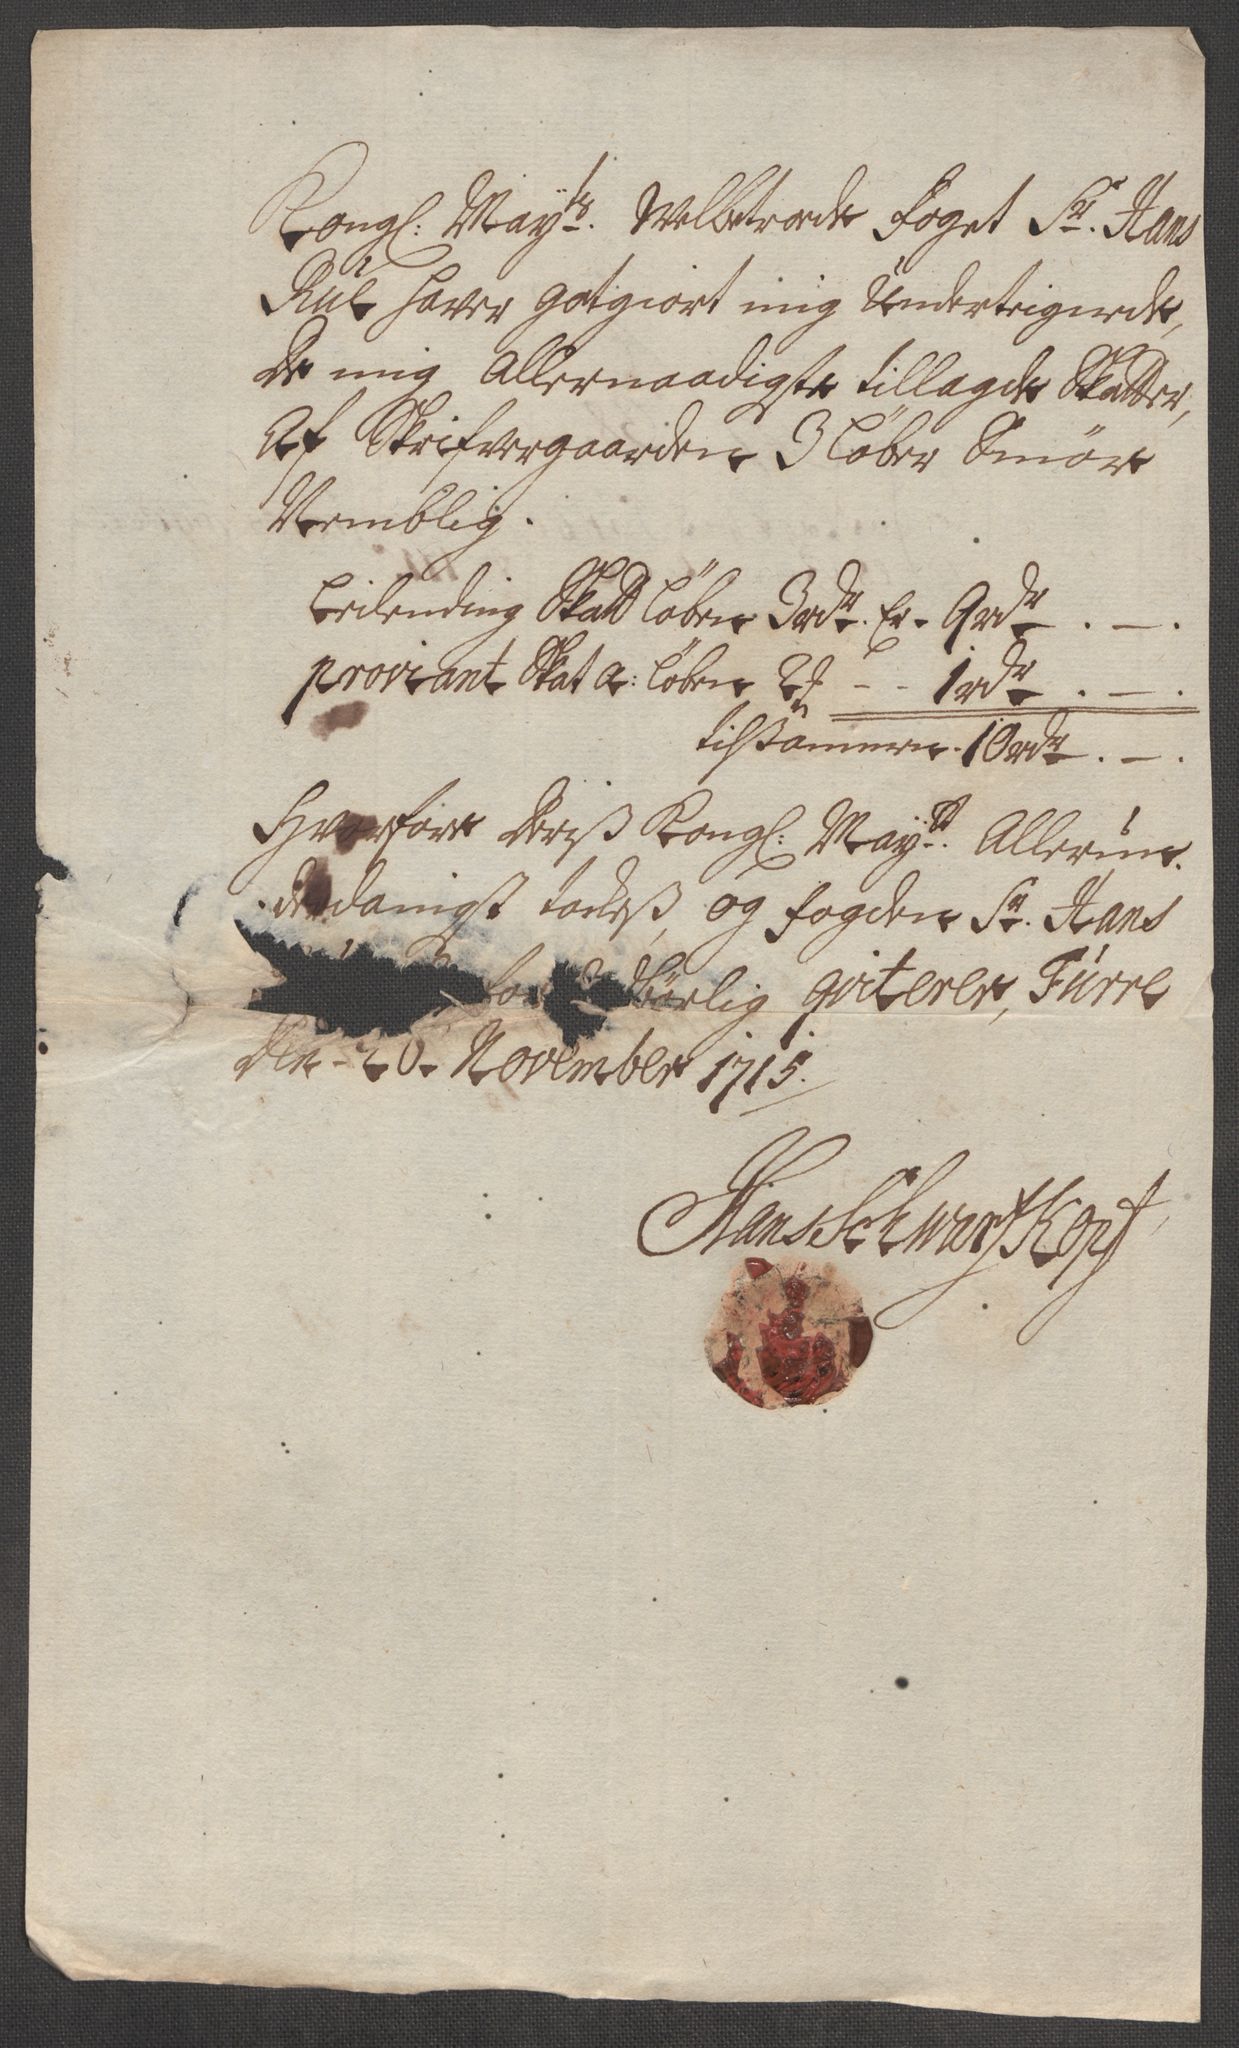 Kongl: May:ts Velbetroede Foget Sr. Hans
Riis hafver gotgiort mig Underteignede,
De mig Allernaadigste tillagde Skatter,
Af Skrifvergaarden 3 løber Smør
Nemblig.
Leilending Skatt løben 3 rdr. Er. 9 rdr . — .
proviant Skat a: løben 2 1 rdr . — .
tilsammen. 10 rdr . — .
Hvorfore deris Kongl: May:tt Allerun-
derdanigst tackes, og fogden Sr. Hans
tilbørlig qviterer, Fürre
den 20. November 1715.
Hans Schwartzkopf